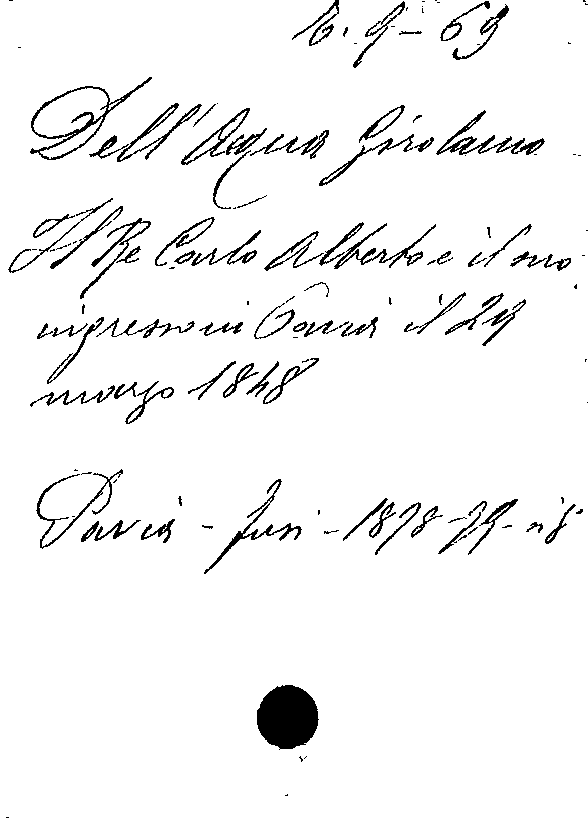 6. 9 - 69
Dell'Acqua Girolamo
Il Re Carlo Alberto e il suo
ingresso in Pavia il 29
marzo 1848
Pavia - Fusi - 1878-79 - in 8°